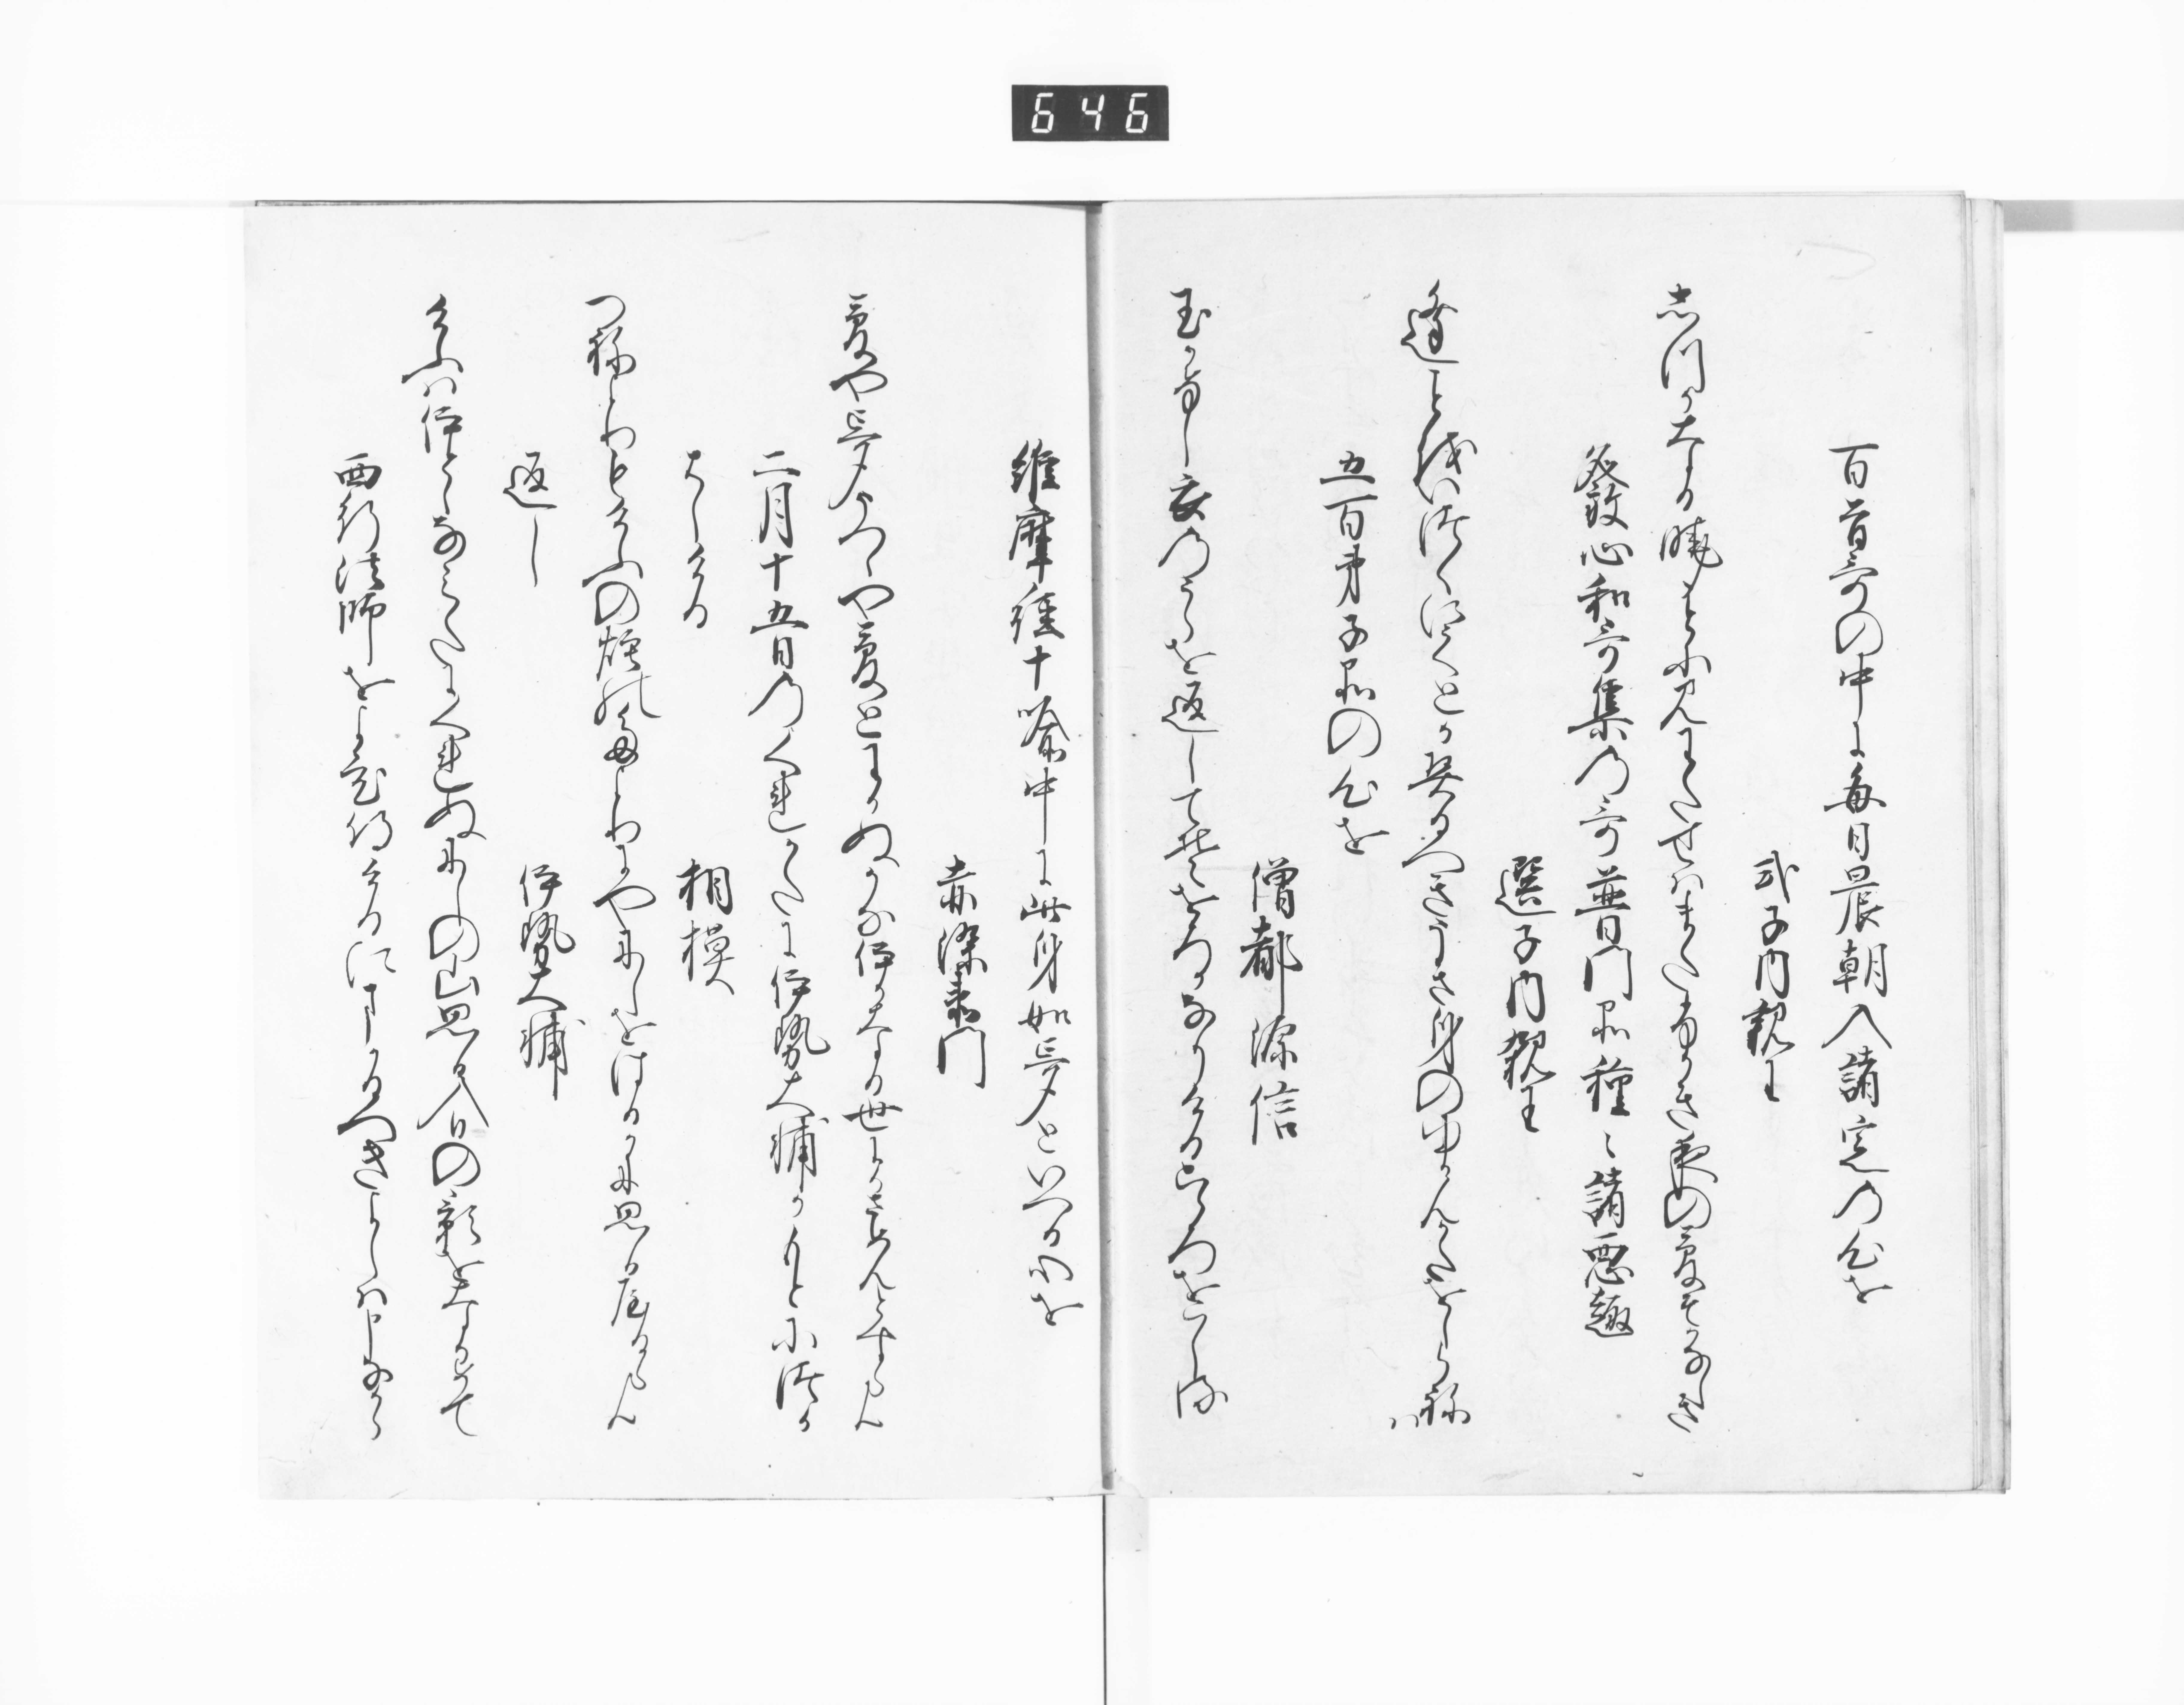 646
百首哥の中に毎日晨朝入諸定の心を
式子内親王
志川かなる暁ことに見わたせはまたふかき夜の夢そかなしき
發心和哥集の哥普門品種ゝ諸悪趣
選子内親王
逢ことをいつくにとか契るへきうき身のゆかんかたをしらねは
五百弟子品の心を
僧都源信
玉かけし衣のうらを返してそをろかなりける心をはしる
維摩経十喩中に此身如夢といへる心を
赤染衛門
夢や夢うつゝや夢とわかぬかないかなる世にかさめんとすらん
二月十五日のくれかたに伊勢大輔かもとにつか
はしける
相模
つねよりもけふの煙のたよりにやにしをはるかに思ひやるらん
返し
伊勢大輔
けふはいとゝなみたにくれぬにしの山思ひ入日の影をなかめて
西行法師をよひ侍けるにまかるへきよしは申なから